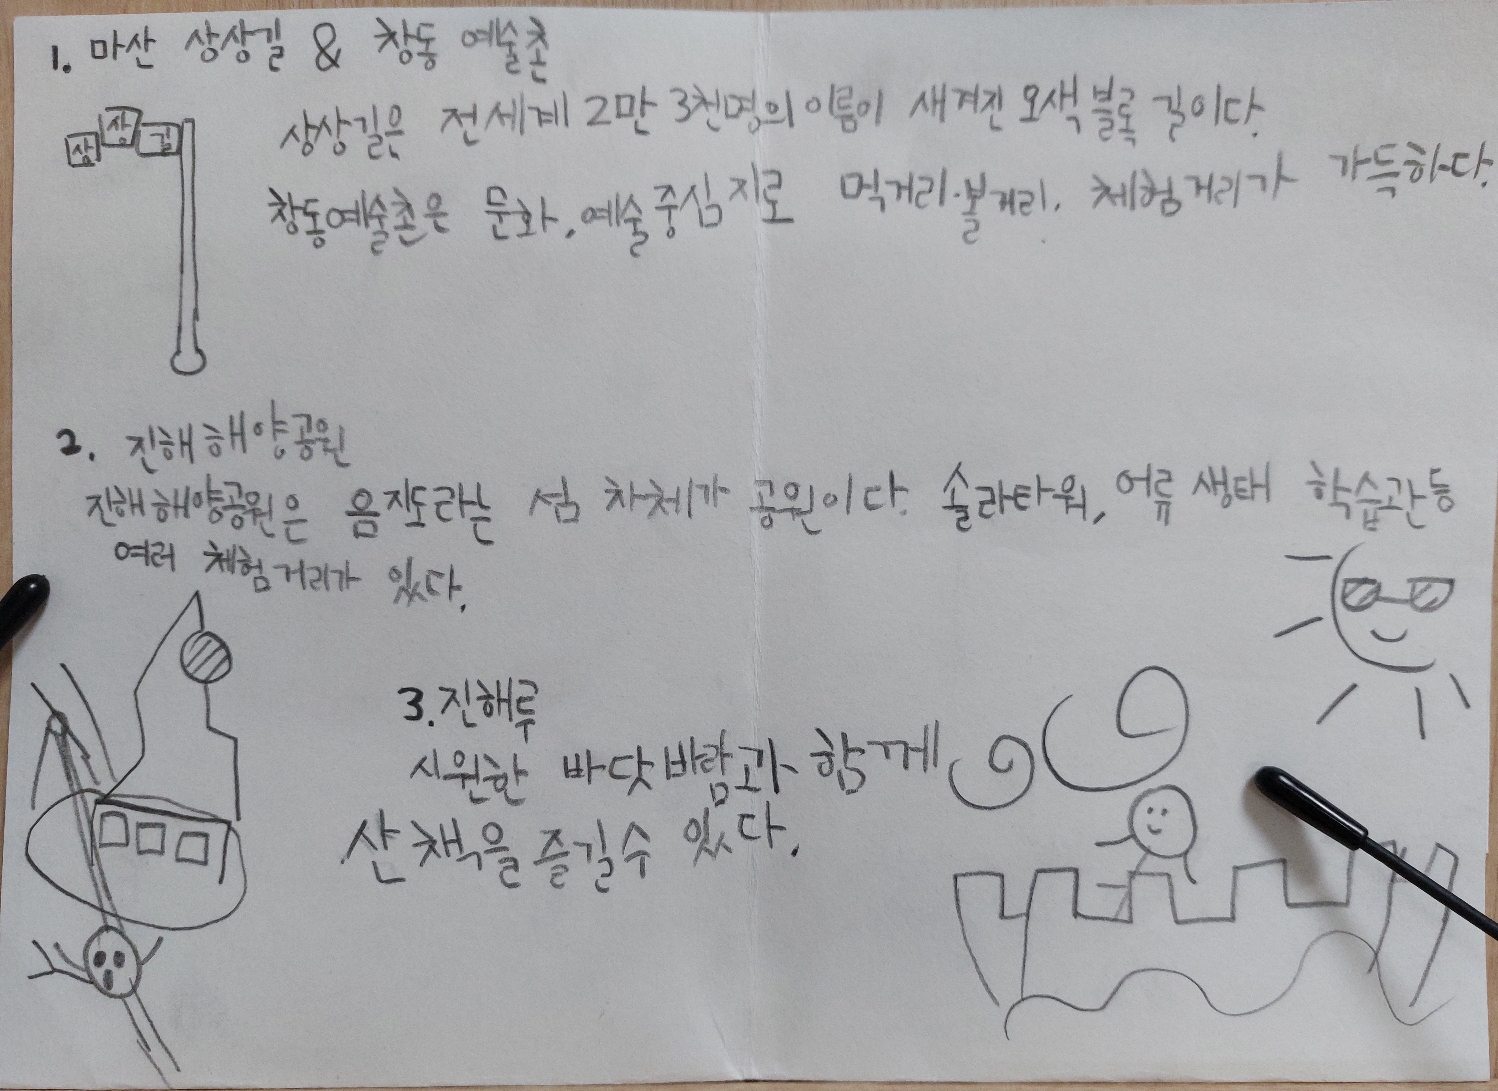 1. 마산 상상길 & 창동 예술촌
상 상 길
상상길은 전세계 2만 3천명의 이름이 새겨진 오색 블록 길이다.
창동예술촌은 문화, 예술 중심지로 먹거리·볼거리, 체험거리가 가득하다.
2. 진해해양공원
진해해양공원은 음지도라는 섬 자체가 공원이다. 솔라타워, 어류 생태 학습관등
여러 체험거리가 있다.
3. 진해루
시원한 바닷바람과 함께
산책을 즐길수 있다.